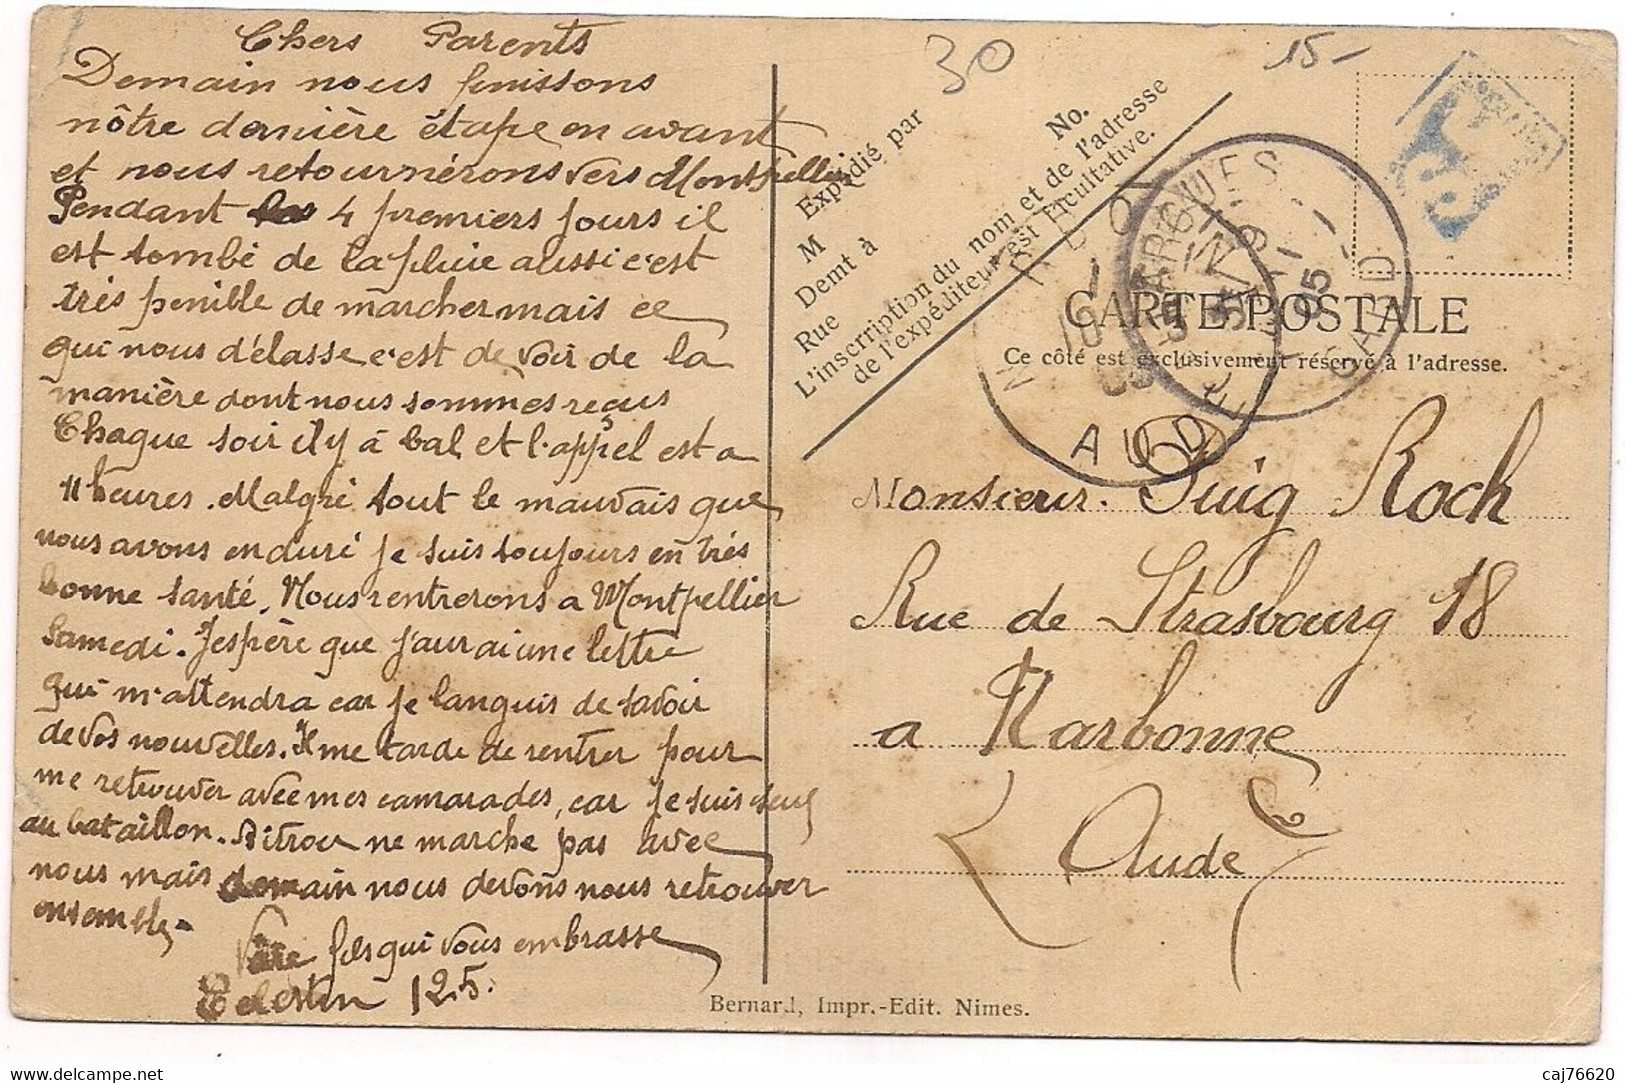 Chers Parents
Demain nous finissons
nôtre dernière étape en avant
et nous retournérons vers Montpellier
Pendant les 4 premiers jours il
est tombé de la pluie aussi c'est
très penible de marcher mais ce
qui nous d'élasse c'est de voir de la
manière dont nous sommes reçus
Chaque soir il y à bal et l'appel est a
11 heures. Malgré tout le mauvais que
nous avons enduré je suis toujours en très
bonne santé. Nous rentrerons a Montpellier
Samedi. J'espère que j'aurai une lettre
qui m'attendra car je languis de savoir
de vos nouvelles. Il me tarde de rentrer pour
me retrouver avec mes camarades, car je suis seul
au bataillon. Bitrou ne marche pas avec
nous mais demain nous devons nous retrouver
ensemble.
Votre fils qui vous embrasse
Celestin 125.
30
15-
Expédié par
M
Demt à
Rue No.
L'inscription du nom et de l'adresse
de l'expéditeur est facultative.
CARTE POSTALE
Ce côté est exclusivement réservé à l'adresse.
GARD
AUDE
Monsieur Puig Roch
Rue de Strasbourg 18
a Narbonne
Aude
Bernard, Impr.-Edit. Nimes.
delcampe.net
caj76620